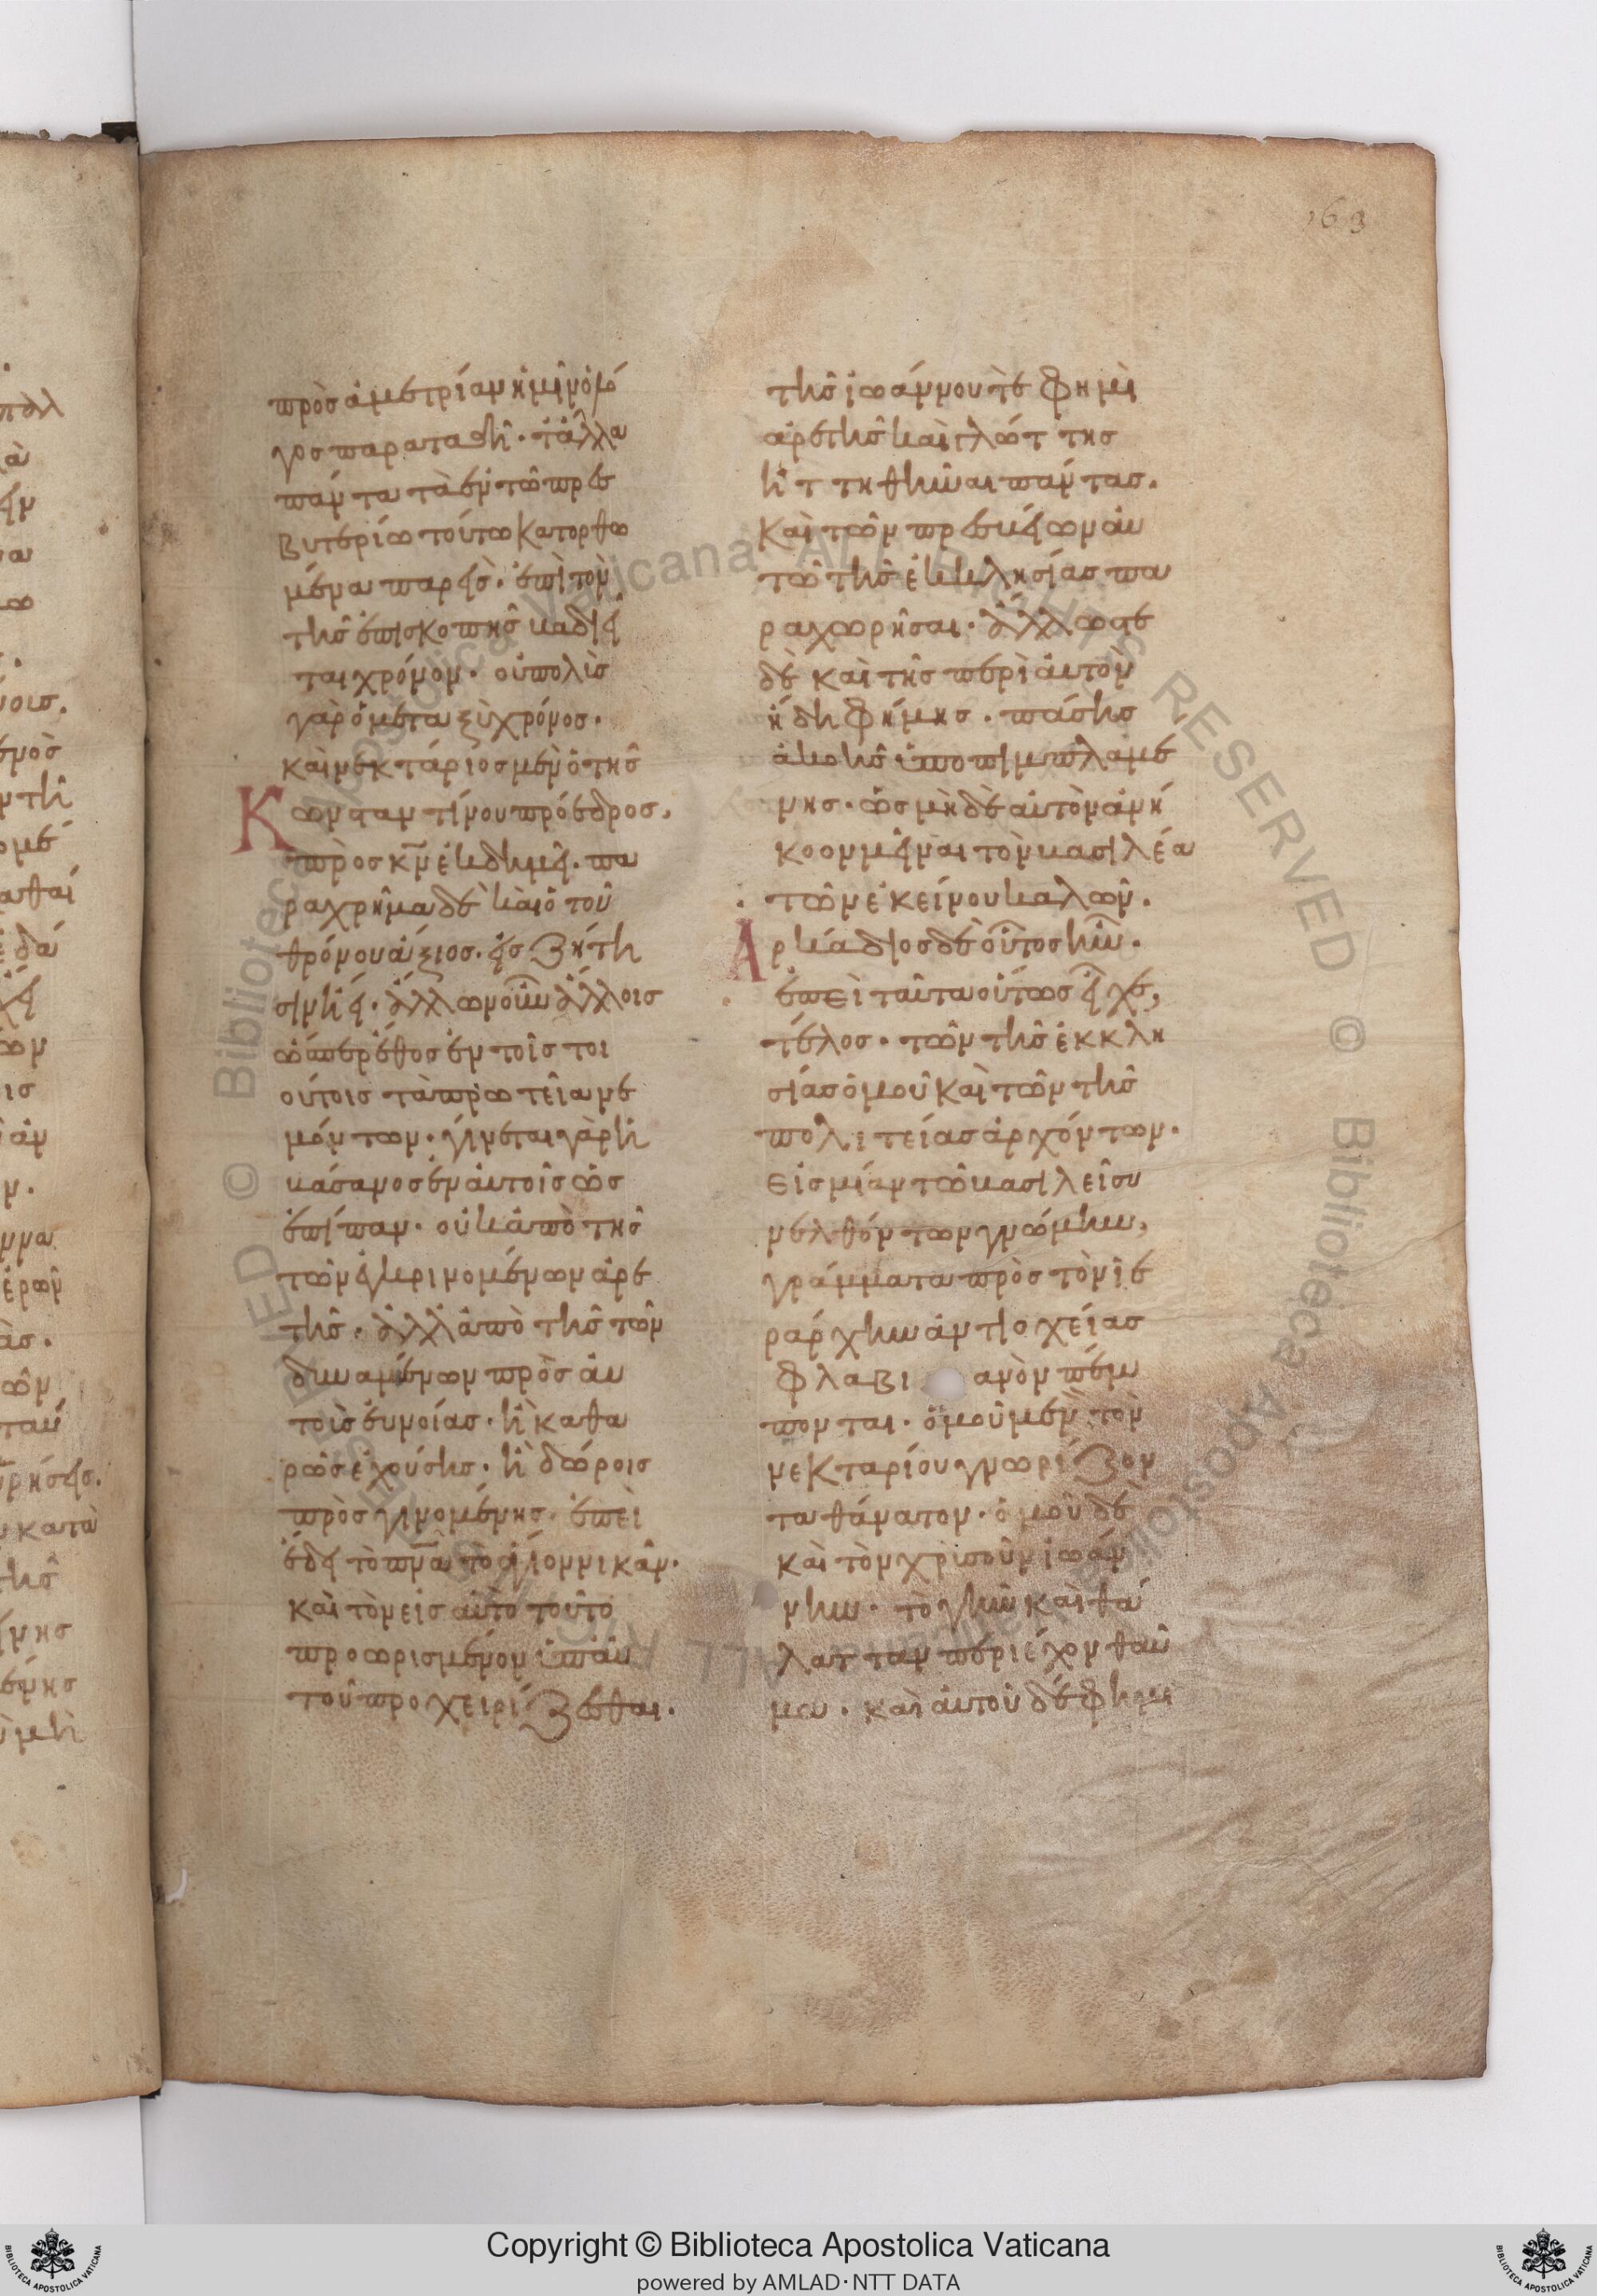 163
πρὸς ἀμετρίαν ἡμῖν ὁ λό
γος παραταθῆ· τἄλλα
πάντα τὰ ἐν τῶ πρεσ
βυτερίω τούτω κατορθώ
μενα παρεὶς· ἐπὶ τὸν
τῆς ἐπισκοπῆς βαδιεῖ
ται χρόνον· οὐ πολὺς
γὰρ ὁ μεταξὺ χρόνος·
καὶ νεκτάριος μὲν ὁ τῆς
Κωνσταντίνου πρόεδρος,
πρὸς κν ἐκδημεῖ· πα
ραχρῆμα δὲ καὶ ὁ τοῦ
θρόνου ἄξιος· εἰς ζήτη
σιν ἥκει· ἄλλων οὖν ἄλλοις
ὥσπερ ἔθος ἐν τοῖς τοι
ούτοις τὰ πρωτεῖα νε
μόντων· γίνεται γὰρ ἡ
βάσανος ἐν αὐτοῖς ὡς
ἐπίπαν· οὐκ ἀπὸ τῆς
τῶν κρινομένων ἀρε
τῆς· ἀλλ' ἀπὸ τῆς τῶν
δυναμένων πρὸς αὐ
τοὺς εὐνοίας· ἢ καθα
ρῶς ἐχούσης· ἢ δώροις
προσγινομένης· ἐπεὶ
ἔδει τὸ πνα τὸ ἅγιον νικᾶν·
καὶ τὸν εἰς αὐτὸ τοῦτο
προωρισμένον ὑπ' αὐ
τοῦ προχειρίζεσθαι·
τῆς ἰωάννου τὲ φημὶ
ἀρετῆς καὶ γλώττης
ἡττηθῆναι πάντας·
καὶ τῶν πρεσβείων αὐ
τῶ τῆς ἐκκλησίας πα
ραχωρῆσαι· ἄλλωστε
δὲ καὶ τῆς περὶ αὐτὸν
ἤδη φήμης· πάσης
ἀκοῆς ὑποπιμπλαμέ
νης· ὡς μηδὲ αὐτὸν ἀνή
κοον μεῖναι τὸν βασιλέα
τῶν ἐκείνου καλῶν·
Ἀρκάδιος δὲ οὗτος ἦν·
ἐπεὶ ταῦτα οὕτως εἶχε,
τέλος· τῶν τῆς ἐκκλη
σίας ὁμοῦ καὶ τῶν τῆς
πολιτείας ἀρχόντων·
εἰς μίαν τῶ βασιλεῖ συ
νελθόντων γνώμην,
γράμματα πρὸς τὸν ἱε
ράρχην ἀντιοχείας
φλαβιανὸν πέμ
πονται· ὁμοῦ μὲν τὸν
νεκταρίου γνωρίζον
τα θάνατον· ὁμοῦ δὲ
καὶ τὸν χρυσοῦν ἰωάν
νην· τὸ γῆν καὶ θά
λατταν περιέχον θαῦ
μα· καὶ αὐτοῦ δέ φημι
Copyright © Biblioteca Apostolica Vaticana
powered by AMLAD·NTT DATA